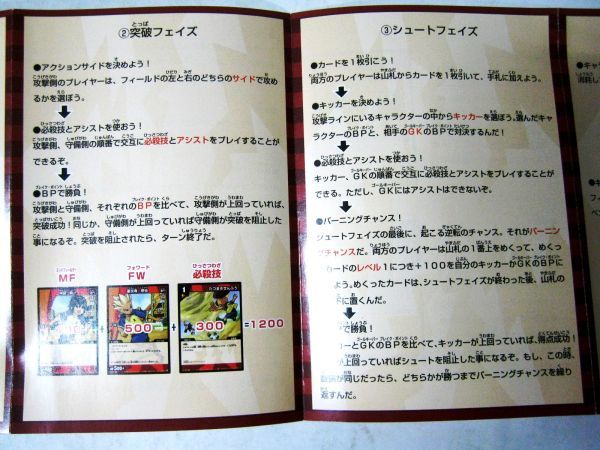 ②突破フェイズ
●アクションサイドを決めよう！
攻撃側のプレイヤーは、フィールドの左と右のどちらのサイドで攻め
るかを選ぼう。
●必殺技とアシストを使おう！
攻撃側、守備側の順番で交互に必殺技とアシストをプレイすることが
できるぞ。
●BPで勝負！
攻撃側と守備側、それぞれのBPを比べて、攻撃側が上回っていれば
突破成功！同じか、守備側が上回っていれば守備側が突破を阻止した
事になるぞ。突破を阻止されたら、ターン終了だ。
MF
フォワード
FW
ひっさつわざ
必殺技
500
+
300
=1200
③シュートフェイズ
●カードを1枚引こう！
両方のプレイヤーは山札からカードを1枚引いて、手札に加えよう。
●キッカーを決めよう！
攻撃ラインにいるキャラクターの中からキッカーを選ぼう。選んだキャ
ラクターのBPと、相手のGKのBPで対決するんだ！
●必殺技とアシストを使おう！
キッカー、GKの順番で交互に必殺技とアシストをプレイすることがで
きる。ただし、GKにはアシストはできないぞ。
●バーニングチャンス！
シュートフェイズの最後に、起こる逆転のチャンス。それがバーニン
グチャンスだ。両方のプレイヤーは山札の1番上をめくって、めくっ
カードのレベル1につき+100を自分のキッカーかGKのBPに
よう。めくったカードは、シュートフェイズが終わった後、山札の
に置くんだ。
で勝負！
ーとGKのBPを比べて、キッカーが上回っていれば、得点成功！
が上回っていればシュートを阻止した事になるぞ。もし、この時、
が同じだったら、どちらかが勝つまでバーニングチャンスを繰り
返すんだ。